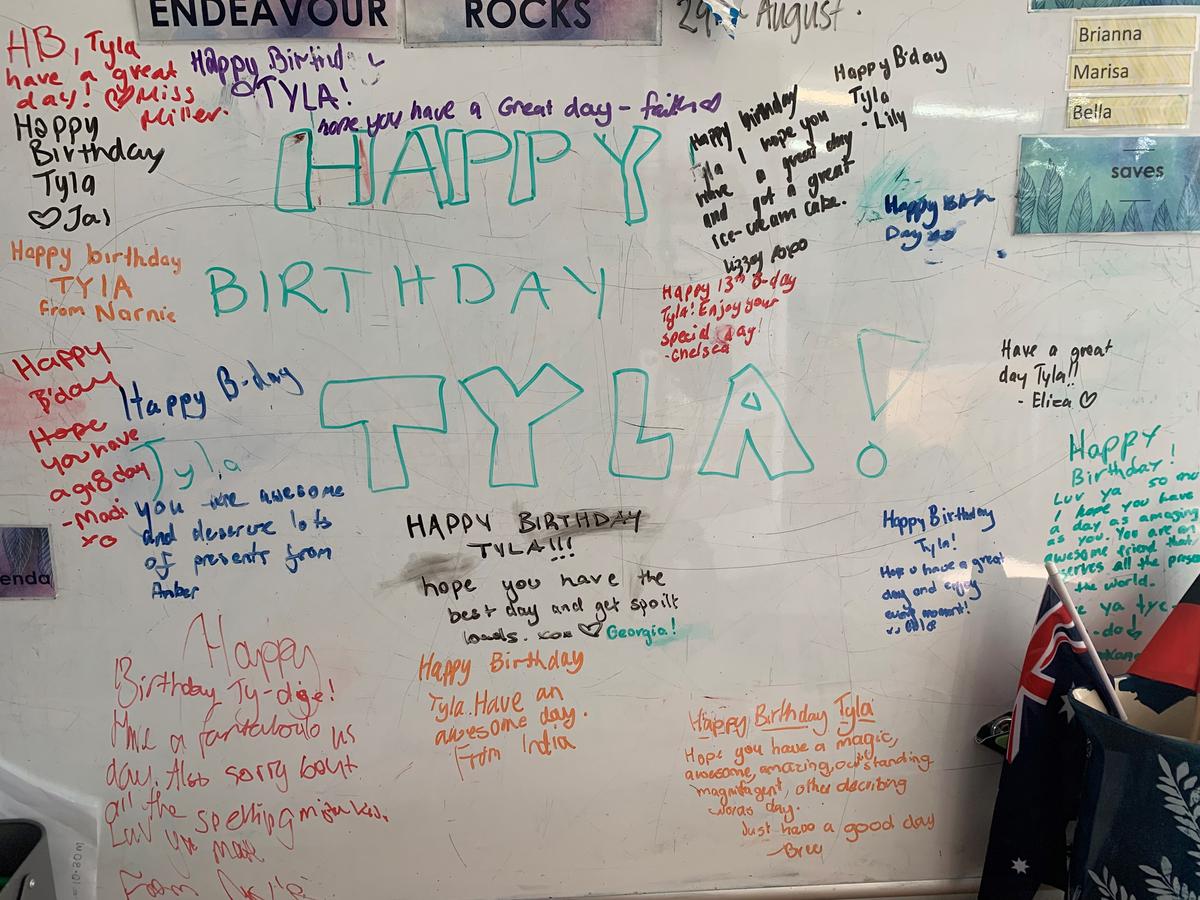 ENDEAVOUR
ROCKS
29 August.
Brianna
Marisa
Bella
saves
enda
HB, Tyla
have a great
day! Miss
Miller.
Happy
TYLA!
hope you have a Great day - faith
Happy
Birthday
Tyla
♡ Jas
Happy B'day
Tyla
- Lilly
Happy birthday
I hope you
have a great day
and get a great
ice-cream cake.
Lizzey xoxo
HAPPY
BIRTHDAY
TYLA!
Happy
Day
Happy birthday
TYLA
from Narnie
Happy 13th B-day
Tyla! Enjoy your
special day!
-Chelsea
Happy
B'day
Hope
you have
a gr8 day
-Madi
xo
Happy B-day
Tyla
you are awesome
and deserve lots
of presents from
Amber
Have a great
day Tyla!!
- Eliza ♡
Happy
Birthday!
Luv ya so
I hope you have
a day as amazing
as you. You are an
awesome friend that
all the
the world.
ya
HAPPY BIRTHDAY
TYLA!!!
hope you have the
best day and get spoilt
loads. xox ♡ Georgia!
Happy Birthday
Tyla!
Hope u have a great
day and enjoy
every moment!
Happy
Birthday Ty-dige!
Have a fantabulo us
day. Also sorry bout
all the spelling mistakes.
Luv
From
Happy Birthday
Tyla. Have an
awesome day.
From India
Happy Birthday Tyla
Hope you have a magic,
awesome, amazing, outstanding
magnifagent, other decribing
words day.
Just have a good day
-Bree